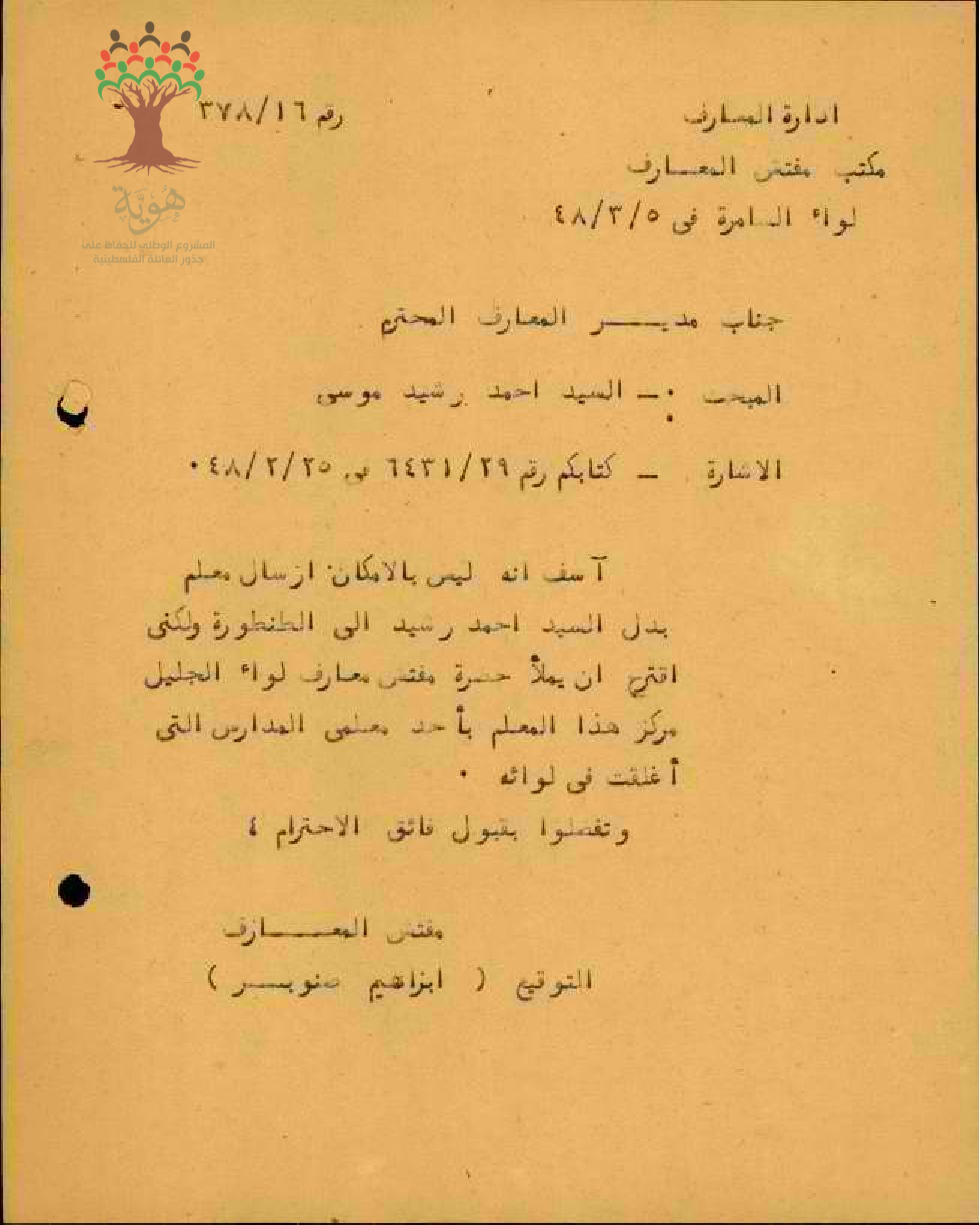 ادارة المعارف
رقم ٣٧٨/١٦
مكتب مفتش المعـــارف
لواء السامرة فى ٤٨/٣/٥
هُوِيَّة
المشروع الوطني للحفاظ على
جذور العائلة الفلسطينية
جناب مديـــر المعارف المحترم
المبحث :ـ السيد احمد رشيد موسى
الاشارة ـ كتابكم رقم ٦٤٣١/٢٩ فى ٤٨/٢/٢٥٠
آسف انه ليس بالامكان ارسال معلم
بدل السيد احمد رشيد الى الطنطورة ولكنى
اقترح ان يملأ حضرة مفتش معارف لواء الجليل
مركز هذا المعلم بأحد معلمى المدارس التى
أغلقت فى لوائه ٠
وتفضلوا بقبول فائق الاحترام ٤
مفتش المعـــارف
التوقيع ( ابراهيم صنوبـــر )